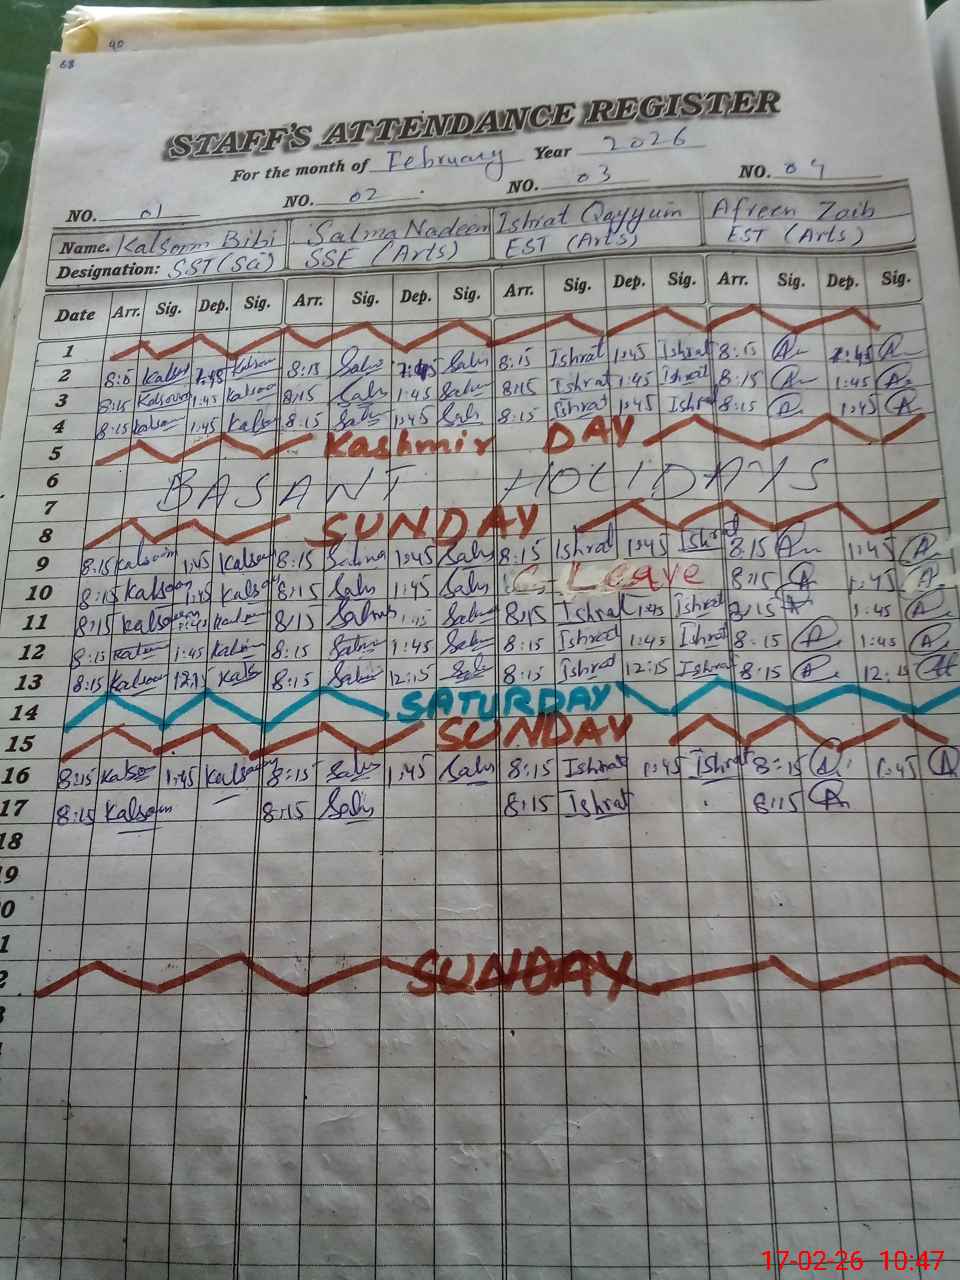 40
68
STAFF'S ATTENDANCE REGISTER
For the month of February Year 2026
NO. 01 NO. 02 NO. 03 NO. 04
Name. Kalsoom Bibi Salma Nadeem Ishrat Qayyum Afreen Zaib
Designation: SST (Sci) SSE (Arts) EST (Arts) EST (Arts)
Date Arr. Sig. Dep. Sig. Arr. Sig. Dep. Sig. Arr. Sig. Dep. Sig. Arr. Sig. Dep. Sig.
1
2 8:15 Kalsoom 1:45 Kalsoom 8:15 1:45 8:15 Ishrat 1:45 Ishrat 8:15 1:45
3 8:15 Kalsoom 1:45 Kalsoom 8:15 1:45 8:15 Ishrat 1:45 Ishrat 8:15 1:45
4 8:15 Kalsoom 1:45 Kalsoom 8:15 1:45 8:15 Ishrat 1:45 Ishrat 8:15 1:45
5 Kashmir DAY
6 BASANT HOLIDAYS
7
8 SUNDAY
9 8:15 Kalsoom 1:45 Kalsoom 8:15 Salma 1:45 8:15 Ishrat 1:45 Ishrat 8:15 1:45
10 8:15 Kalsoom 1:45 Kalsoom 8:15 1:45 Leave 8:15 1:45
11 8:15 Kalsoom 1:45 8:15 Salma 1:45 8:15 Ishrat 1:45 Ishrat 8:15 1:45
12 8:15 1:45 8:15 1:45 8:15 Ishrat 1:45 Ishrat 8:15 1:45
13 8:15 Kalsoom 12:15 8:15 12:15 8:15 Ishrat 12:15 Ishrat 8:15 12:15
14 SATURDAY
15 SUNDAY
16 8:15 1:45 Kalsoom 8:15 1:45 8:15 Ishrat 1:45 Ishrat 8:15 1:45
17 8:15 Kalsoom 8:15 8:15 Ishrat 8:15
18
9
0
1
2 SUNDAY
17-02-26 10:47